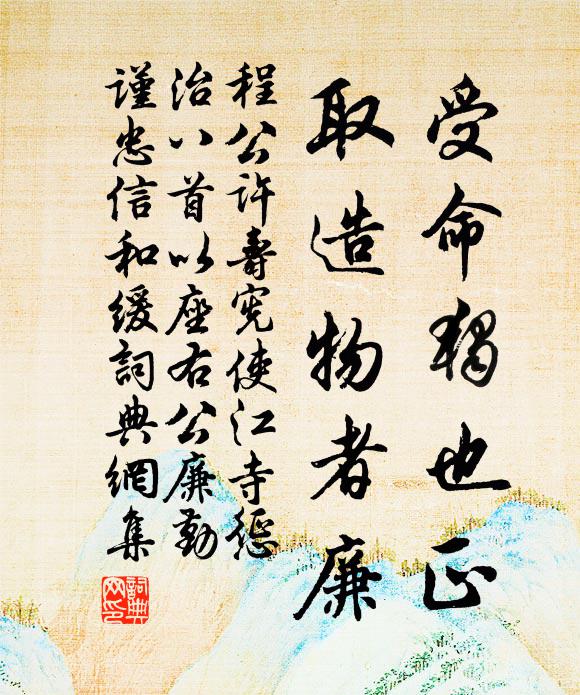 受命獨也正
取造物者廉
程公許壽憲使江寺丞
治八首以座右公廉勤
謹忠信和緩詞典網集
詞典網印